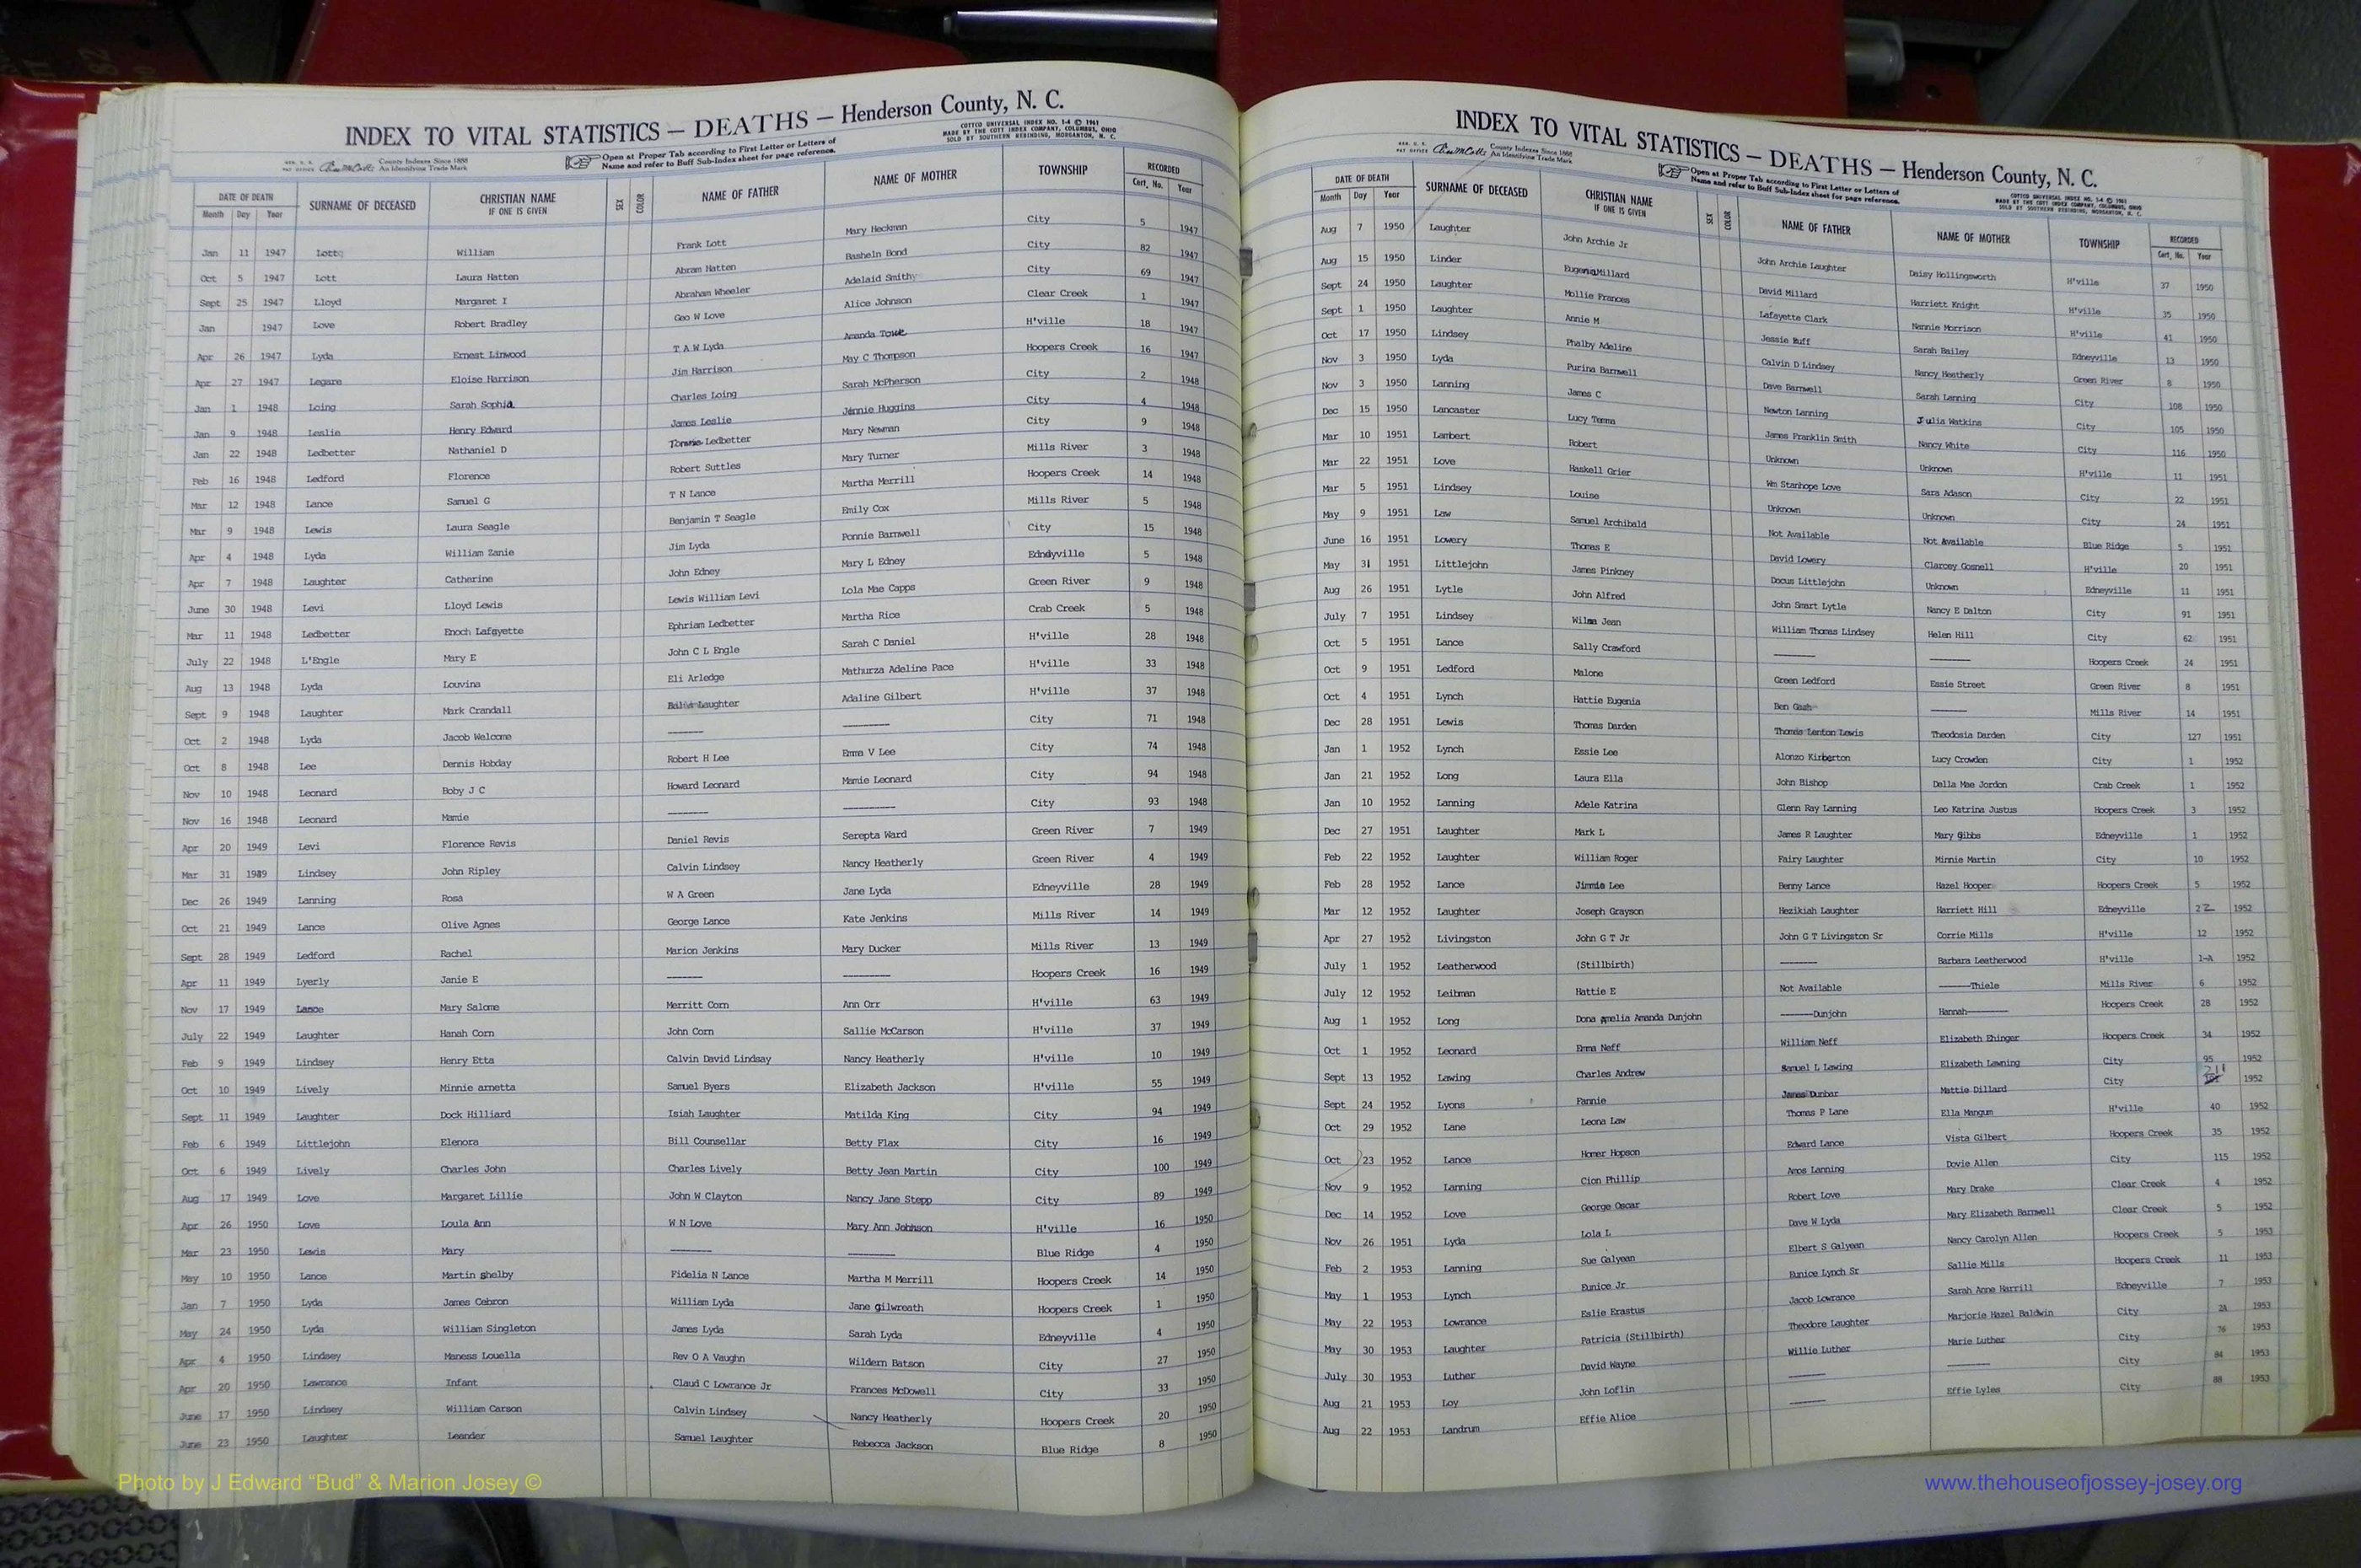 INDEX TO VITAL STATISTICS — DEATHS — Henderson County, N. C.
COTTCO UNIVERSAL INDEX NO. 1-4 © 1961
MADE BY THE COTT INDEX COMPANY, COLUMBUS, OHIO
SOLD BY SOUTHERN REBINDING, MORGANTON, N. C.
REG. U. S. PAT OFFICE County Indexes Since 1888 An Identifying Trade Mark
Open at Proper Tab according to First Letter or Letters of
Name and refer to Buff Sub-Index sheet for page reference.
DATE OF DEATH SURNAME OF DECEASED CHRISTIAN NAME IF ONE IS GIVEN SEX COLOR NAME OF FATHER NAME OF MOTHER TOWNSHIP RECORDED
Month Day Year Cert. No. Year
Jan 11 1947 Lott William Frank Lott Mary Heckman City 5 1947
Oct 5 1947 Lott Laura Hatten Abram Hatten Basheln Bond City 82 1947
Sept 25 1947 Lloyd Margaret I Abraham Wheeler Adelaid Smith City 69 1947
Jan 1947 Love Robert Bradley Geo W Love Alice Johnson Clear Creek 1 1947
Apr 26 1947 Lyda Ernest Linwood T A W Lyda Amanda Towe H'ville 18 1947
Apr 27 1947 Legare Eloise Harrison Jim Harrison May C Thompson Hoopers Creek 16 1947
Jan 1 1948 Loing Sarah Sophia Charles Loing Sarah McPherson City 2 1948
Jan 9 1948 Leslie Henry Edward James Leslie Jennie Huggins City 4 1948
Jan 22 1948 Ledbetter Nathaniel D Tommie Ledbetter Mary Newman City 9 1948
Feb 16 1948 Ledford Florence Robert Suttles Mary Turner Mills River 3 1948
Mar 12 1948 Lance Samuel G T N Lance Martha Merrill Hoopers Creek 14 1948
Mar 9 1948 Lewis Laura Seagle Benjamin T Seagle Emily Cox Mills River 5 1948
Apr 4 1948 Lyda William Zanie Jim Lyda Ponnie Barnwell City 15 1948
Apr 7 1948 Laughter Catherine John Edney Mary L Edney Edneyville 5 1948
June 30 1948 Levi Lloyd Lewis Lewis William Levi Lola Mae Capps Green River 9 1948
Mar 11 1948 Ledbetter Enoch Lafayette Ephriam Ledbetter Martha Rice Crab Creek 5 1948
July 22 1948 L'Engle Mary E John C L Engle Sarah C Daniel H'ville 28 1948
Aug 13 1948 Lyda Louvina Eli Arledge Mathurza Adeline Pace H'ville 33 1948
Sept 9 1948 Laughter Mark Crandall Laughter Adaline Gilbert H'ville 37 1948
Oct 2 1948 Lyda Jacob Welcome ------- --------- City 71 1948
Oct 8 1948 Lee Dennis Hobday Robert H Lee Emma V Lee City 74 1948
Nov 10 1948 Leonard Boby J C Howard Leonard Mamie Leonard City 94 1948
Nov 16 1948 Leonard Mamie -------- ---------- City 93 1948
Apr 20 1949 Levi Florence Revis Daniel Revis Serepta Ward Green River 7 1949
Mar 31 1949 Lindsey John Ripley Calvin Lindsey Nancy Heatherly Green River 4 1949
Dec 26 1949 Lanning Rosa W A Green Jane Lyda Edneyville 28 1949
Oct 21 1949 Lance Olive Agnes George Lance Kate Jenkins Mills River 14 1949
Sept 28 1949 Ledford Rachel Marion Jenkins Mary Ducker Mills River 13 1949
Apr 11 1949 Lyerly Janie E ------- --------- Hoopers Creek 16 1949
Nov 17 1949 Lance Mary Salome Merritt Corn Ann Orr H'ville 63 1949
July 22 1949 Laughter Hanah Corn John Corn Sallie McCarson H'ville 37 1949
Feb 9 1949 Lindsey Henry Etta Calvin David Lindsay Nancy Heatherly H'ville 10 1949
Oct 10 1949 Lively Minnie arnetta Samuel Byers Elizabeth Jackson H'ville 55 1949
Sept 11 1949 Laughter Dock Hilliard Isiah Laughter Matilda King City 94 1949
Feb 6 1949 Littlejohn Elenora Bill Counsellar Betty Flax City 16 1949
Oct 6 1949 Lively Charles John Charles Lively Betty Jean Martin City 100 1949
Aug 17 1949 Love Margaret Lillie John W Clayton Nancy Jane Stepp City 89 1949
Apr 26 1950 Love Loula Ann W N Love Mary Ann Johnson H'ville 16 1950
Mar 23 1950 Lewis Mary -------- --------- Blue Ridge 4 1950
May 10 1950 Lance Martin Shelby Fidelia N Lance Martha M Merrill Hoopers Creek 14 1950
Jan 7 1950 Lyda James Cebron William Lyda Jane gilwreath Hoopers Creek 1 1950
May 24 1950 Lyda William Singleton James Lyda Sarah Lyda Edneyville 4 1950
Apr 4 1950 Lindsey Maness Louella Rev O A Vaughn Wildern Batson City 27 1950
Apr 20 1950 Lawrance Infant Claud C Lowrance Jr Frances McDowell City 33 1950
June 17 1950 Lindsey William Carson Calvin Lindsey Nancy Heatherly Hoopers Creek 20 1950
June 23 1950 Laughter Leander Samuel Laughter Rebecca Jackson Blue Ridge 8 1950
Photo by J Edward “Bud” & Marion Josey ©
INDEX TO VITAL STATISTICS — DEATHS — Henderson County, N. C.
REG. U. S. PAT OFFICE County Indexes Since 1888 An Identifying Trade Mark
Open at Proper Tab according to First Letter or Letters of
Name and refer to Buff Sub-Index sheet for page reference.
COTTCO UNIVERSAL INDEX NO. 1-4 © 1961
MADE BY THE COTT INDEX COMPANY, COLUMBUS, OHIO
SOLD BY SOUTHERN REBINDING, MORGANTON, N. C.
DATE OF DEATH SURNAME OF DECEASED CHRISTIAN NAME IF ONE IS GIVEN SEX COLOR NAME OF FATHER NAME OF MOTHER TOWNSHIP RECORDED
Month Day Year Cert. No. Year
Aug 7 1950 Laughter John Archie Jr John Archie Laughter Daisy Hollingsworth H'ville 37 1950
Aug 15 1950 Linder Eugenia Millard David Millard Harriett Knight H'ville 35 1950
Sept 24 1950 Laughter Mollie Frances Lafayette Clark Nannie Morrison H'ville 41 1950
Sept 1 1950 Laughter Annie M Jessie Ruff Sarah Bailey Edneyville 13 1950
Oct 17 1950 Lindsey Phalby Adeline Calvin D Lindsey Nancy Heatherly Green River 8 1950
Nov 3 1950 Lyda Purina Barnwell Dave Barnwell Sarah Lanning City 108 1950
Nov 3 1950 Lanning James C Newton Lanning Julia Watkins City 105 1950
Dec 15 1950 Lancaster Lucy Temma James Franklin Smith Nancy White City 116 1950
Mar 10 1951 Lambert Robert Unknown Unknown H'ville 11 1951
Mar 22 1951 Love Haskell Grier Wm Stanhope Love Sara Adason City 22 1951
Mar 5 1951 Lindsey Louise Unknown Unknown City 24 1951
May 9 1951 Law Samuel Archibald Not Available Not Available Blue Ridge 5 1951
June 16 1951 Lowery Thomas E David Lowery Clarcey Gosnell H'ville 20 1951
May 31 1951 Littlejohn James Pinkney Docus Littlejohn Unknown Edneyville 11 1951
Aug 26 1951 Lytle John Alfred John Smart Lytle Nancy E Dalton City 91 1951
July 7 1951 Lindsey Wilma Jean William Thomas Lindsey Helen Hill City 62 1951
Oct 5 1951 Lance Sally Crawford -------- -------- Hoopers Creek 24 1951
Oct 9 1951 Ledford Malone Green Ledford Essie Street Green River 8 1951
Oct 4 1951 Lynch Hattie Eugenia Ben Gash ------- Mills River 14 1951
Dec 28 1951 Lewis Thomas Darden Thomas Lenton Lewis Theodosia Darden City 127 1951
Jan 1 1952 Lynch Essie Lee Alonzo Kirberton Lucy Crowden City 1 1952
Jan 21 1952 Long Laura Ella John Bishop Della Mae Jordon Crab Creek 1 1952
Jan 10 1952 Lanning Adele Katrina Glenn Ray Lanning Leo Katrina Justus Hoopers Creek 3 1952
Dec 27 1951 Laughter Mark L James R Laughter Mary Gibbs Edneyville 1 1952
Feb 22 1952 Laughter William Roger Fairy Laughter Minnie Martin City 10 1952
Feb 28 1952 Lance Jimmie Lee Benny Lance Hazel Hooper Hoopers Creek 5 1952
Mar 12 1952 Laughter Joseph Grayson Hezikiah Laughter Harriett Hill Edneyville 22 1952
Apr 27 1952 Livingston John G T Jr John G T Livingston Sr Corrie Mills H'ville 12 1952
July 1 1952 Leatherwood (Stillbirth) ------- Barbara Leatherwood H'ville 1-A 1952
July 12 1952 Leibman Hattie E Not Available ------Thiele Mills River 6 1952
Aug 1 1952 Long Dona amelia Amanda Dunjohn ------Dunjohn Hannah------- Hoopers Creek 28 1952
Oct 1 1952 Leonard Emma Neff William Neff Elizabeth Ehinger Hoopers Creek 34 1952
Sept 13 1952 Lawing Charles Andrew Samuel L Lawing Elizabeth Lawning City 95 1952
Sept 24 1952 Lyons Fannie James Dunbar Mattie Dillard City 211 1952
Oct 29 1952 Lane Leona Law Thomas P Lane Ella Mangum H'ville 40 1952
Oct 23 1952 Lance Homer Hopson Edward Lance Vista Gilbert Hoopers Creek 35 1952
Nov 9 1952 Lanning Cion Phillip Amos Lanning Dovie Allen City 115 1952
Dec 14 1952 Love George Oscar Robert Love Mary Drake Clear Creek 4 1952
Nov 26 1951 Lyda Lola L Dave W Lyda Mary Elizabeth Barnwell Clear Creek 5 1952
Feb 2 1953 Lanning Sue Galyean Elbert S Galyean Nancy Carolyn Allen Hoopers Creek 5 1953
May 1 1953 Lynch Eunice Jr Eunice Lynch Sr Sallie Mills Hoopers Creek 11 1953
May 22 1953 Lowrance Eslie Erastus Jacob Lowrance Sarah Anne Harrill Edneyville 7 1953
May 30 1953 Laughter Patricia (Stillbirth) Theodore Laughter Marjorie Hazel Baldwin City 2A 1953
July 30 1953 Luther David Wayne Willie Luther Marie Luther City 76 1953
Aug 21 1953 Loy John Loflin ------- -------- City 84 1953
Aug 22 1953 Landrum Effie Alice ------- Effie Lyles City 88 1953
www.thehouseofjossey-josey.org